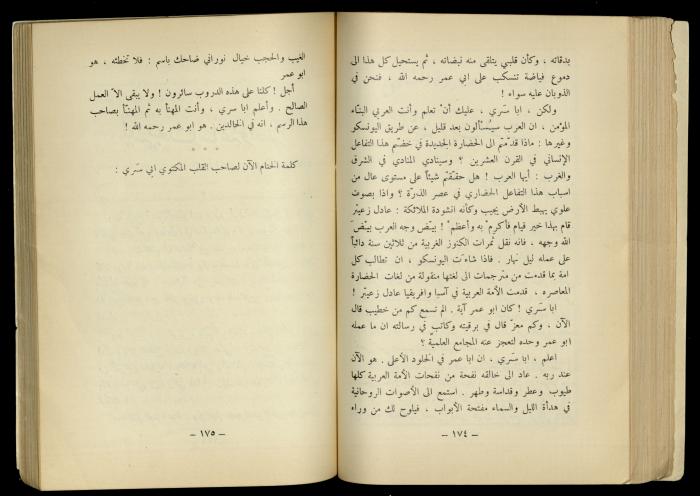 بدقاته ، وكأن قلبي يتلقى منه نبضاته ، ثم يستحيل كل هذا الى
دموع فياضة تنسكب على ابي عمر رحمه الله ، فنحن في
الذوبان عليه سواء !
ولكن ، ابا سَري ، عليك أنْ تعلم وأنت العربي البنّاء
المؤمن ، ان العرب سيُسألون بعد قليل ، عن طريق اليونسكو
وغيرها : ماذا قدمّتم الى الحضارة الجديدة في خضّم هذا التفاعل
الإنساني في القرن العشرين ؟ وسينادي المنادي في الشرق
والغرب : أيها العرب ! هل حققّتم شيئاً على مستوى عال من
اسباب هذا التفاعل الحضاري في عصر الذرّة ؟ واذا بصوت
علوي يهبط الأرض يجيب وكأنه انشودة الملائكة : عادل زعيتر
قام بهذا خير قيام فأكرمْ به وأعظمْ ! بيّض وجه العرب بيّضَ
الله وجهه ، فانه نقل ثمرات الكنوز الغربية من ثلاثين سنة دائباً
على عمله ليل نهار . فاذا شاءَت اليونسكو ، ان تطالب كل
امة بما قدمت من مترجمات الى لغتها منقولة من لغات الحضارة
المعاصره ، قدمت الأمة العربية في آسيا وافريقيا عادل زعيتر !
ابا سَري ! كان ابو عمر آية . الم تسمع كم من خطيب قال
الآن ، وكم معزّ قال في برقيته وكاتب في رسالته ان ما عمله
ابو عمر وحده لتعجز عنه المجامع العلميّة ؟
اعلم ، ابا سَري ، ان ابا عمر في الخلود الأعلى . هو الآن
عند ربه . عاد الى خالقه نفحة من نفحات الأمة العربية كلها
طيوب وعطر وقداسة وطهر . استمع الى الأصوات الروحانية
في هدأة الليل والسماء مفتحة الأبواب ، فيلوح لك من وراء
– ١٧٤ –
الغيب والحجب خيال نوراني ضاحك باسم : فلا تخطئه ، هو
ابو عمر
أجل ! كلنا على هذه الدروب سائرون ! ولا يبقى الاّ العمل
الصالح . وأعلم ابا سري ، وأنت المهنّأ به ثم المهنّأ بصاحب
هذا الرسم ، انه في الخالدين . هو ابو عمر رحمه الله !
* * *
كلمة الختام الآن لصاحب القلب المكتوي ابي سَري :
– ١٧٥ –